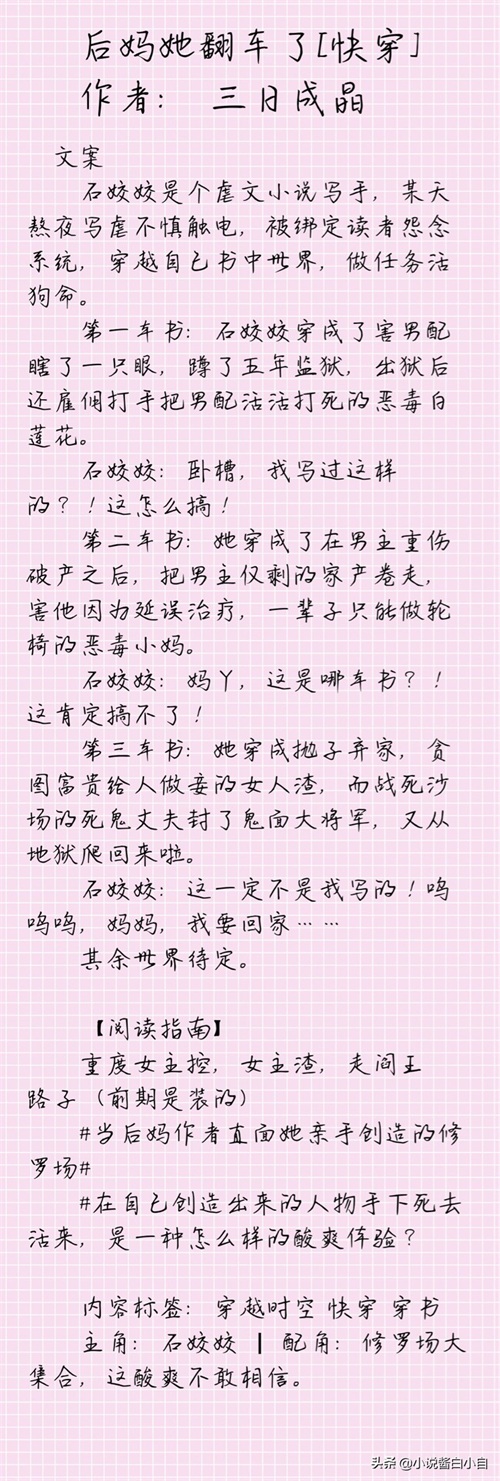 后妈她翻车了[快穿]
作者： 三日成晶
文案
石姣姣是个虐文小说写手，某天
熬夜写虐不慎触电，被绑定读者怨念
系统，穿越自己书中世界，做任务活
狗命。
第一本书：石姣姣穿成了害男配
瞎了一只眼，蹲了五年监狱，出狱后
还雇佣打手把男配活活打死的恶毒白
莲花。
石姣姣：卧槽，我写过这样
的？！这怎么搞！
第二本书：她穿成了在男主重伤
破产之后，把男主仅剩的家产卷走，
害他因为延误治疗，一辈子只能做轮
椅的恶毒小妈。
石姣姣：妈丫，这是哪本书？！
这肯定搞不了！
第三本书：她穿成抛子弃家，贪
图富贵给人做妾的女人渣，而战死沙
场的死鬼丈夫封了鬼面大将军，又从
地狱爬回来啦。
石姣姣：这一定不是我写的！呜
呜呜，妈妈，我要回家……
其余世界待定。
【阅读指南】
重度女主控，女主渣，走阎王
路子（前期是装的）
#当后妈作者直面她亲手创造的修
罗场#
#在自己创造出来的人物手下死去
活来，是一种怎么样的酸爽体验？
内容标签：穿越时空 快穿 穿书
主角：石姣姣 ┃ 配角：修罗场大
集合，这酸爽不敢相信。
头条 @小说酱白小自